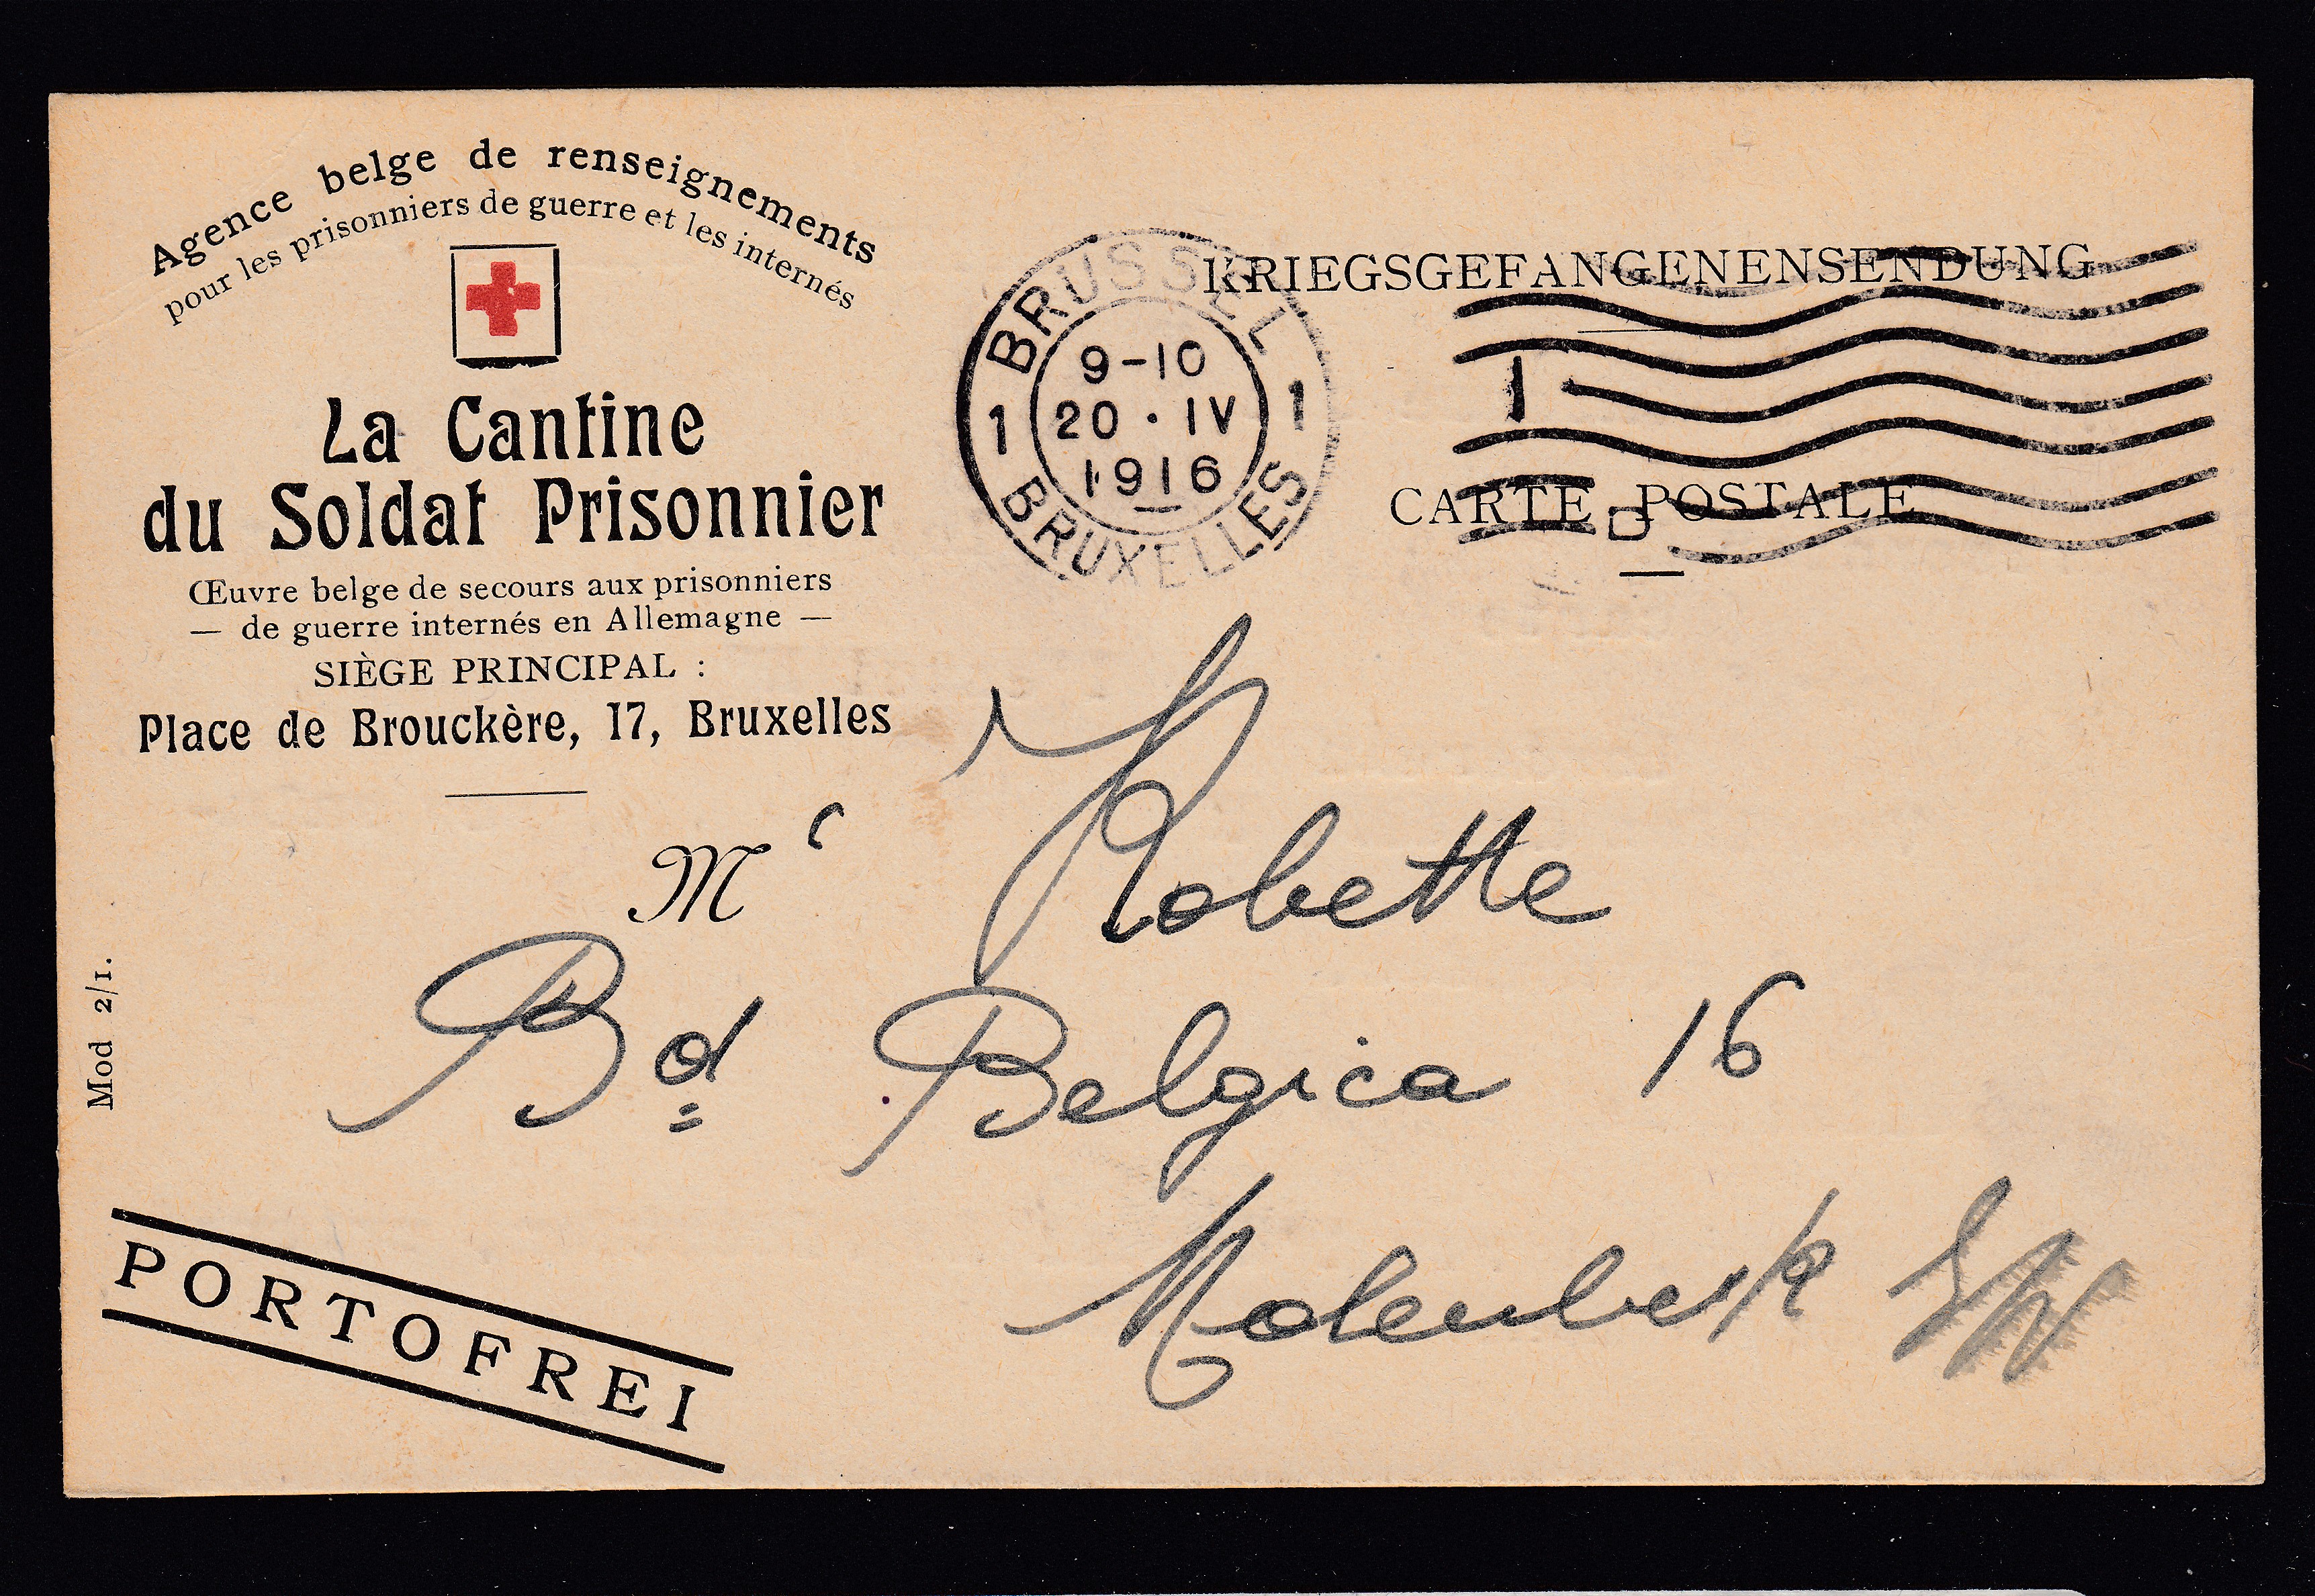 Agence belge de renseignements
pour les prisonniers de guerre et les internés
La Cantine
du Soldat Prisonnier
Œuvre belge de secours aux prisonniers
— de guerre internés en Allemagne —
SIÈGE PRINCIPAL :
Place de Brouckère, 17, Bruxelles
BRUSSEL
9-10
1 20 · IV 1
1916
BRUXELLES
KRIEGSGEFANGENENSENDUNG
1
CARTE POSTALE
M
Bd Belgica 16
Molenbeek
Mod 2/1.
PORTOFREI